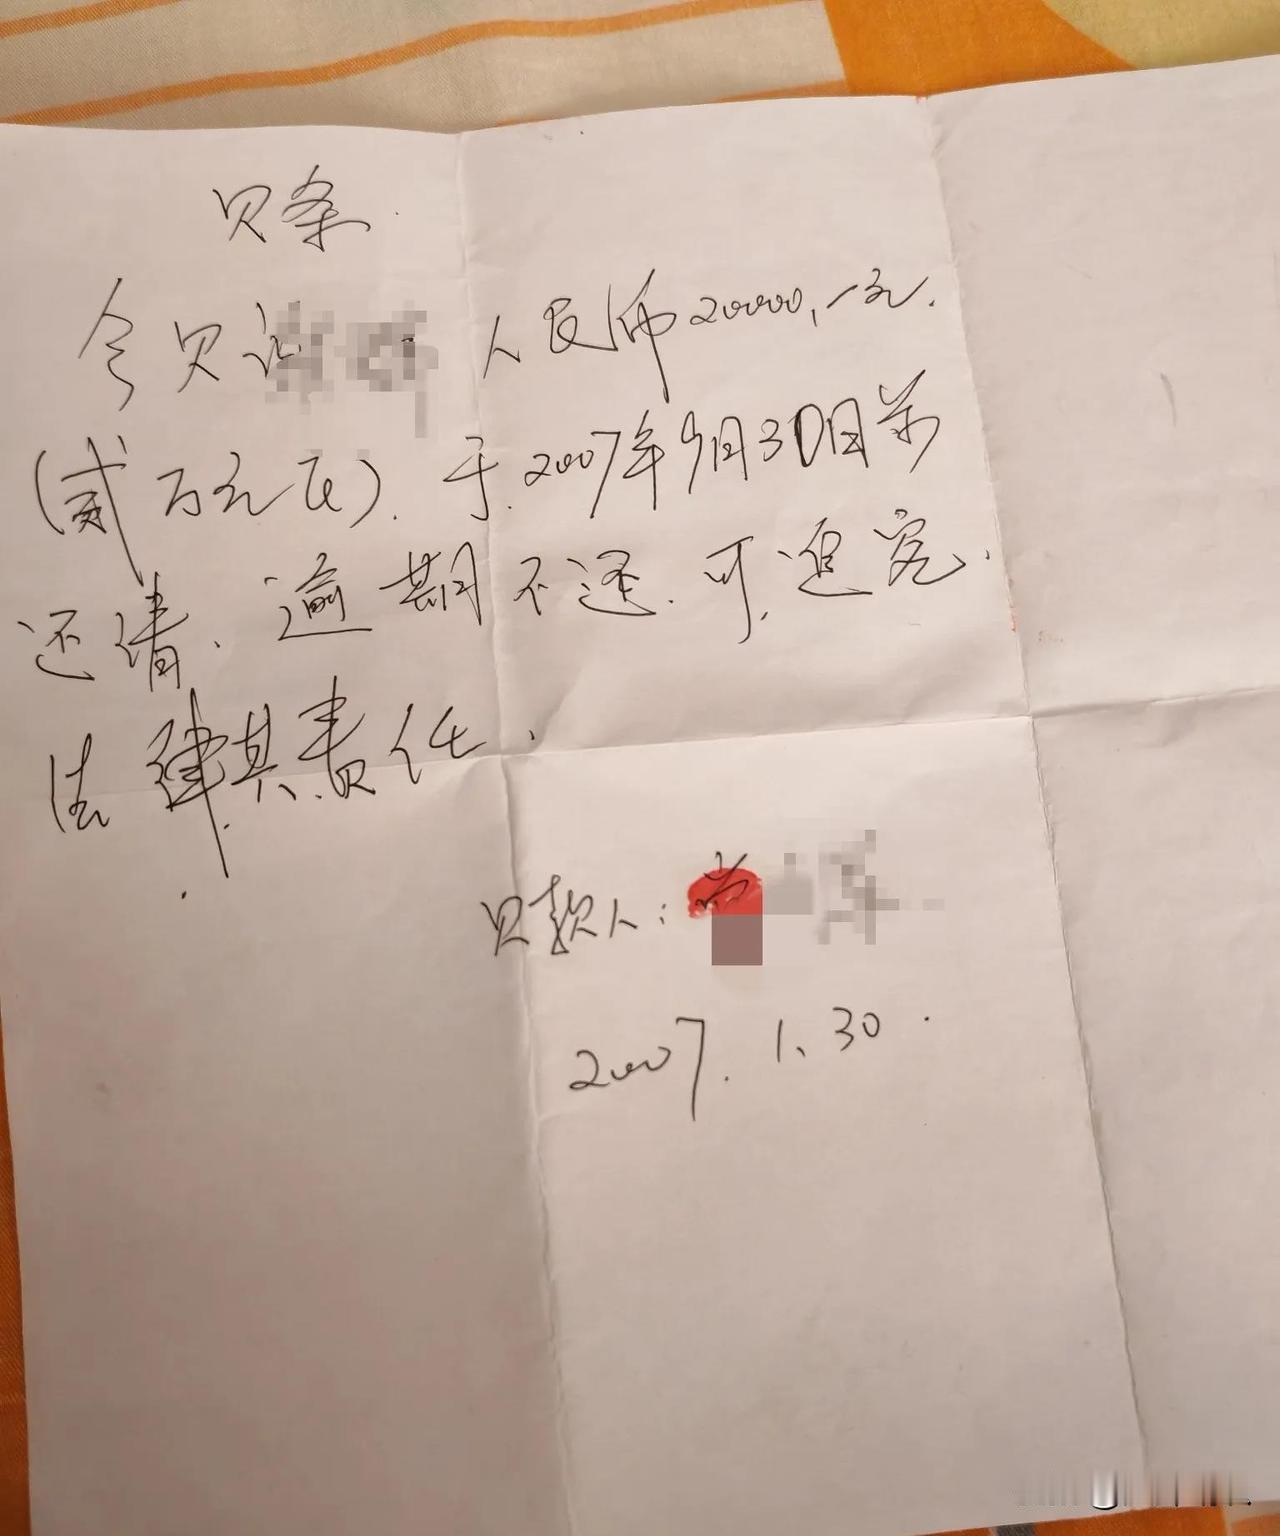 欠条
今欠 人民币20000,一元.
(贰万元正).于.2007年9月30日前
还清.逾期不还.可.追究.
法律其责任.
欠款人:
2007.1.30.